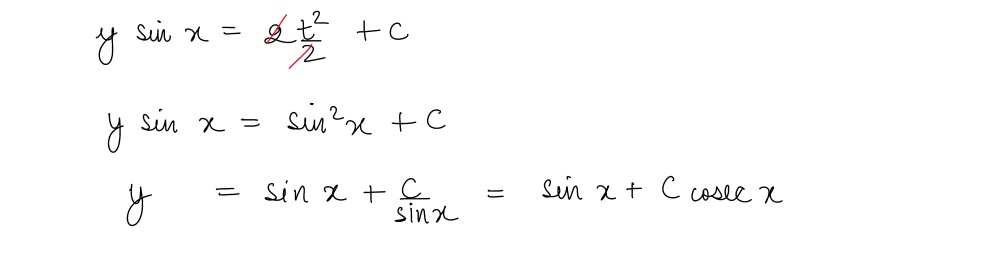 y sin x = 2 t²/2 + C
y sin x = sin²x + C
y = sin x + C/sinx = sin x + C cosec x